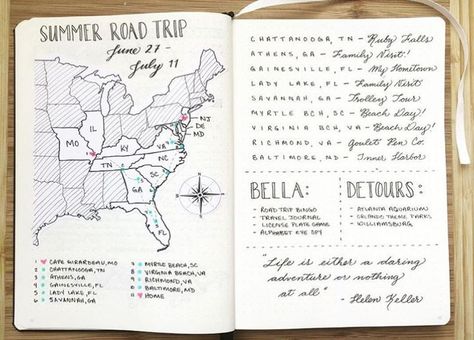 SUMMER ROAD TRIP
June 27 -
July 11
NJ
DE
MD
IL
MO
KY
VA
TN
NC
SC
GA
FL
1 CAPE GIRARDEAU, MO
2 CHATTANOOGA, TN
3 ATHENS, GA
4 GAINESVILLE, FL
5 LADY LAKE, FL
6 SAVANNAH, GA
7 MYRTLE BEACH, SC
8 VIRGINIA BEACH, VA
9 RICHMOND, VA
10 BALTIMORE, MD
11 HOME
CHATTANOOGA, TN - Ruby Falls
ATHENS, GA - Family Visit!
GAINESVILLE, FL - My Hometown
LADY LAKE, FL - Family Visit
SAVANNAH, GA - Trolley Tour
MYRTLE BCH, SC - Beach Day!
VIRGINIA BCH, VA - Beach Day!
RICHMOND, VA - Goulet Pen Co.
BALTIMORE, MD - Inner Harbor
BELLA:
- ROAD TRIP BINGO
- TRAVEL JOURNAL
- LICENSE PLATE GAME
- ALPHABET EYE SPY
DETOURS:
- ATLANTA AQUARIUM
- ORLANDO THEME PARKS
- WILLIAMSBURG
"Life is either a daring
adventure or nothing
at all"
- Helen Keller